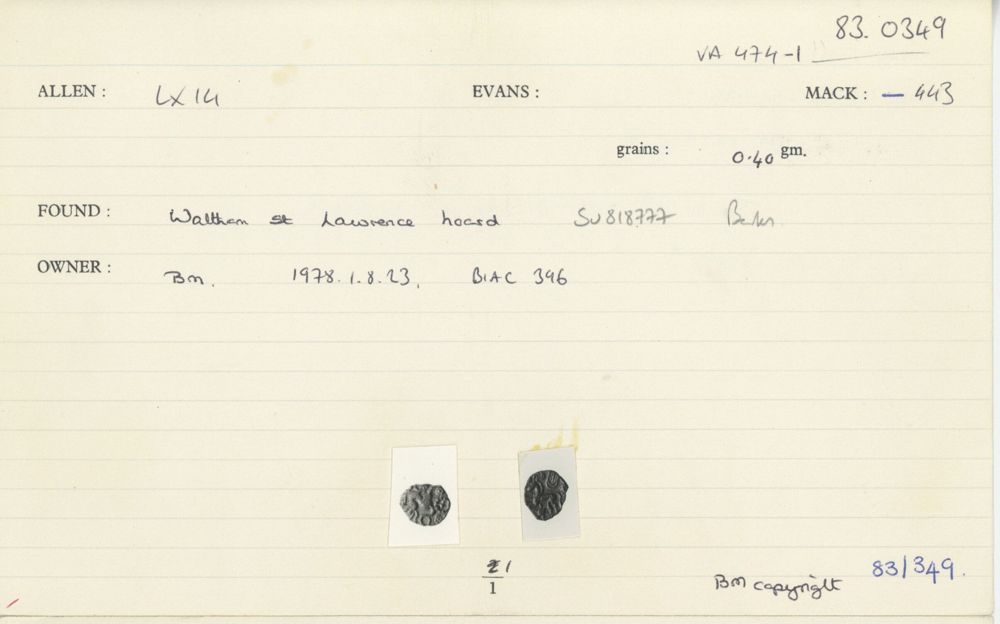 83. 0349
VA 474-1
ALLEN: LX 14 EVANS: MACK: — 443
grains: 0.40 gm.
FOUND: Waltham St Lawrence hoard SU818777 Berks
OWNER: Bm. 1978.1.8.23. BIAC 396
1
1
Bm copyright 83/349.